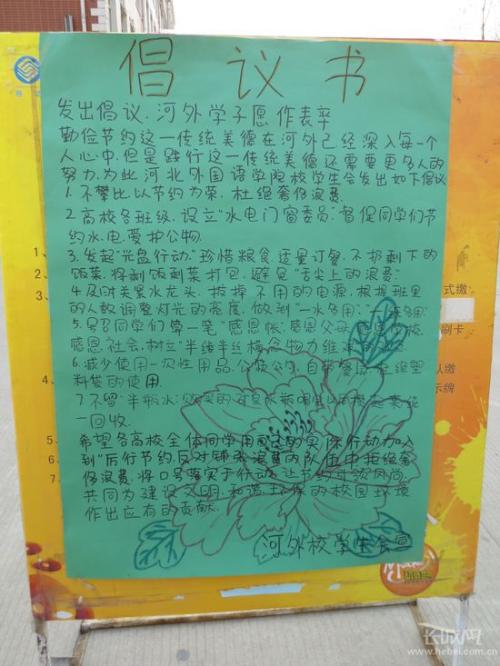 倡议书
发出倡议,河外学子愿作表率
勤俭节约这一传统美德在河外已经深入每一个
人心中,但是践行这一传统美德还需要更多人的
努力,为此河北外国语学院校学生会发出如下倡议
1.不攀比以节约为荣,杜绝奢侈浪费.
2.高校各班级,设立"水电门窗委员",督促同学们节
约水,电,爱护公物.
3.发起"光盘行动"珍惜粮食,适量订餐,不扔剩下的
饭菜,将剩饭剩菜打包,避免"舌尖上的浪费"
4.及时关紧水龙头,拔掉不用的电源,根据班里
的人数调整灯光的亮度,做到"一水多用"
5.同学们算一笔"感恩帐"感恩父母
感恩社会,树立"半丝半缕恒念物力维
6.减少使用一次性用品,自带餐 杜绝塑
料袋的使用
7.不留"半瓶水"
一回收.
希望各高校全体同学用 的实际行动加入
到"厉行节约,反对铺张浪费"的队伍中拒绝奢
侈浪费,将口号落实于行动,让节约
共同为建设文明,和谐环保的校园环境
作出应有的贡献.
河外校学生会宣
式缴
刷卡
认缴
示牌
1、
2、
3、
4、
5、
6、
7、
长城网
www.hebei.com.cn